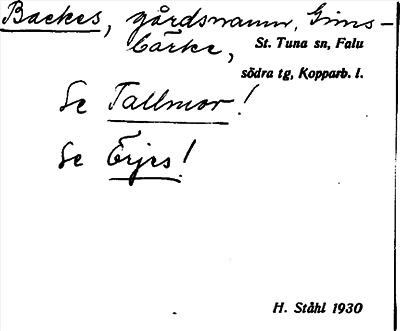 Backes, gårdsnamn, Gims-
bärke, St. Tuna sn, Falu
södra tg, Kopparb. l.
Se Tallmor!
Se Erjes!
H. Ståhl 1930